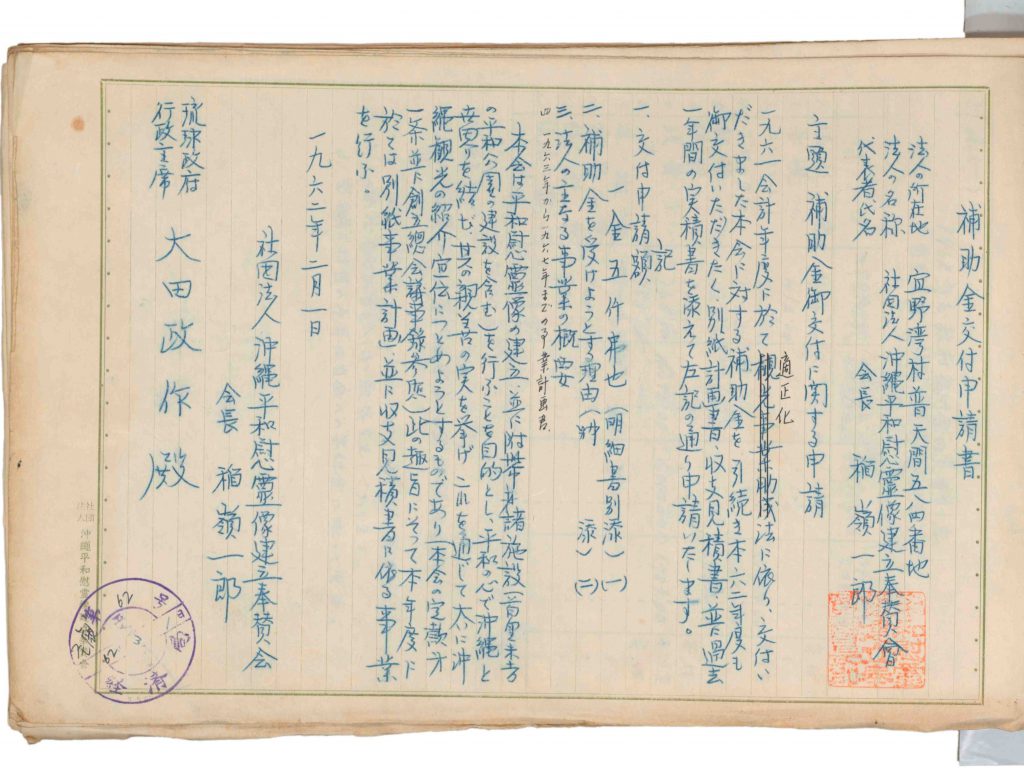 補助金交付申請書
法人の所在地 宜野湾村普天間五八四番地
法人の名称 社団法人沖縄平和慰霊像建立奉賛会
代表者氏名 会長 稲嶺一郎
主題 補助金御交付に関する申請
適正化
一九六一会計年度に於て観光事業助成法に依り、交付い
だきました本会に対する補助金を引続き本六二年度も
御交付いただきたく、別紙計画書、収支見積書、並に過去
一年間の実積書を添えて左記の通り申請いたします。
記
一、交付申請額
一金五仟弗也(明細書別添)(一)
二、補助金を受けようとする理由(別添)(二)
三、法人の主なる事業の概要
四 一九六三年から一九六七年までの事業計画書
本会は平和慰霊像の建立、並に附帯其諸施設(首里末吉
の平和公園の建設を含む)を行ふことを目的とし平和の心で沖縄と
世界を結び、其の親善の実を挙げ これを通じて大に沖
縄観光の紹介宣伝につとめようとするものであり(本会の定款才
一条並に創立総会議事録参照)此の趣旨にそって本年度に
於ては別紙事業計画、並に収支見積書に依る事業
を行ふ。
一九六二年二月一日
社団法人 沖縄平和慰霊像建立奉賛会
会長 稲嶺一郎
琉球政府
行政主席 大田政作殿
社団法人 沖縄平和慰霊